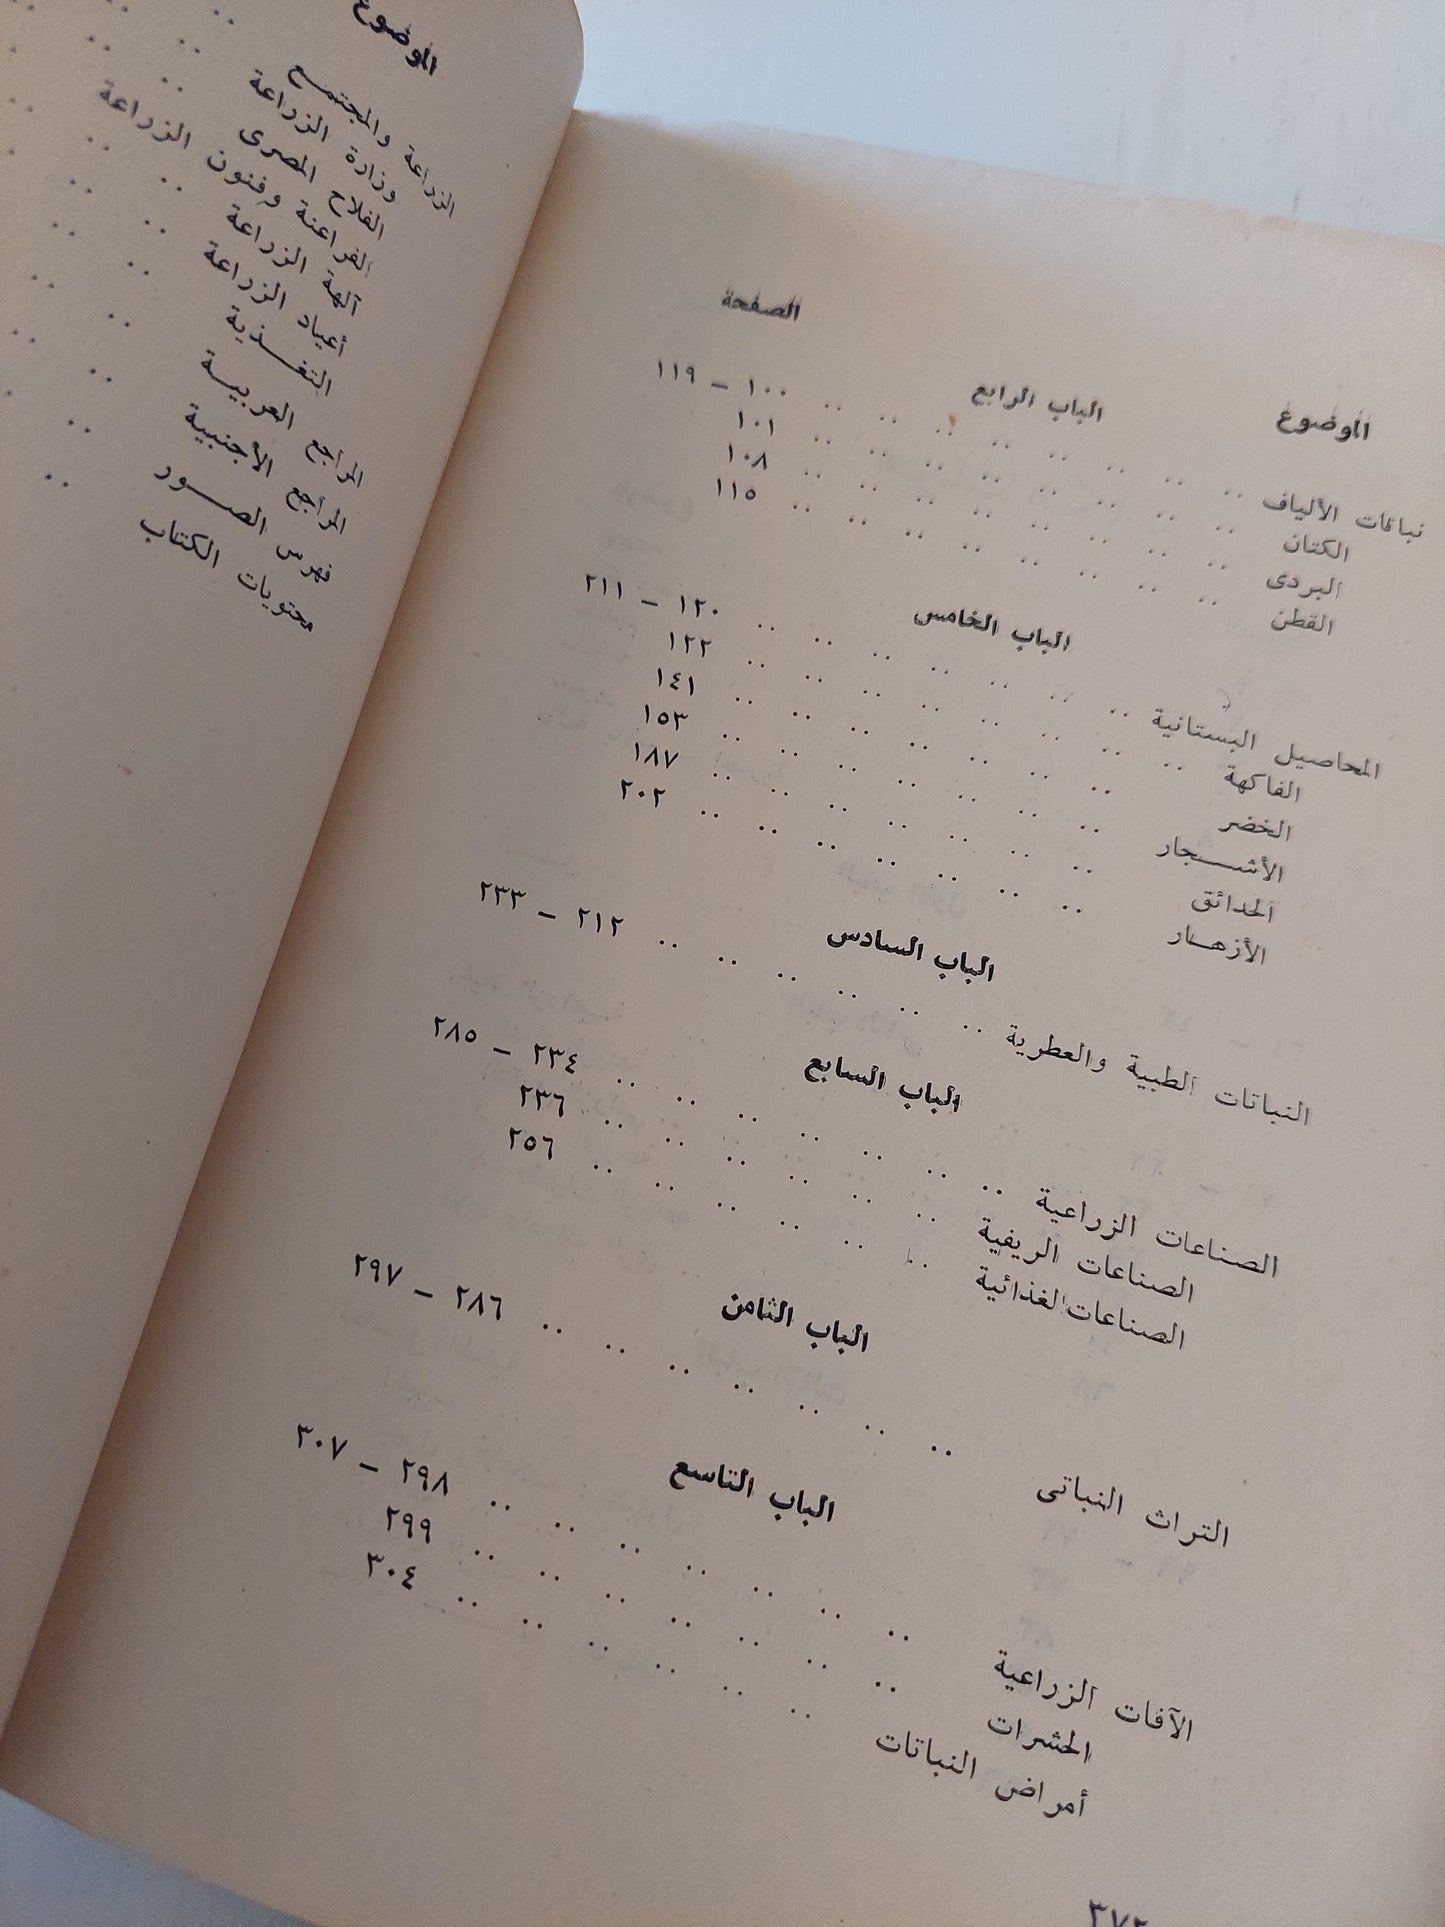 الموضوع الصفحة
الباب الرابع
نباتات الألياف .. .. .. .. .. .. .. .. ١٠٠ – ١١٩
الكتان .. .. .. .. .. .. .. .. ١٠١
البردى .. .. .. .. .. .. .. .. ١٠٨
القطن .. .. .. .. .. .. .. .. ١١٥
الباب الخامس
المحاصيل البستانية .. .. .. .. .. .. .. ١٢٠ – ٢١١
الفاكهة .. .. .. .. .. .. .. .. ١٢٢
الخضر .. .. .. .. .. .. .. ١٤١
الأشـــجار .. .. .. .. .. .. .. ١٥٣
الحدائق .. .. .. .. .. .. .. ١٨٧
الأزهـــار .. .. .. .. .. .. .. ٢٠٢
الباب السادس
النباتات الطبية والعطرية .. .. .. .. .. .. ٢١٢ – ٢٣٣
الباب السابع
الصناعات الزراعية .. .. .. .. .. .. .. ٢٣٤ – ٢٨٥
الصناعات الريفية .. .. .. .. .. .. ٢٣٦
الصناعات الغذائية .. .. .. .. .. .. ٢٥٦
الباب الثامن
التراث النباتى .. .. .. .. .. .. .. ٢٨٦ – ٢٩٧
الباب التاسع
الآفات الزراعية .. .. .. .. .. .. .. ٢٩٨ – ٣٠٧
الحشرات .. .. .. .. .. .. .. ٢٩٩
أمراض النباتات .. .. .. .. .. .. ٣٠٤
الموضوع
الزراعة والمجتمـــع
وزارة الزراعة
الفلاح المصرى
الفراعنة وفنون الزراعة
آلهة الزراعة
أعياد الزراعة
التغـــذية
المراجع العربيـــة
المراجع الأجنبية
فهرس الصـــور
محتويات الكتاب